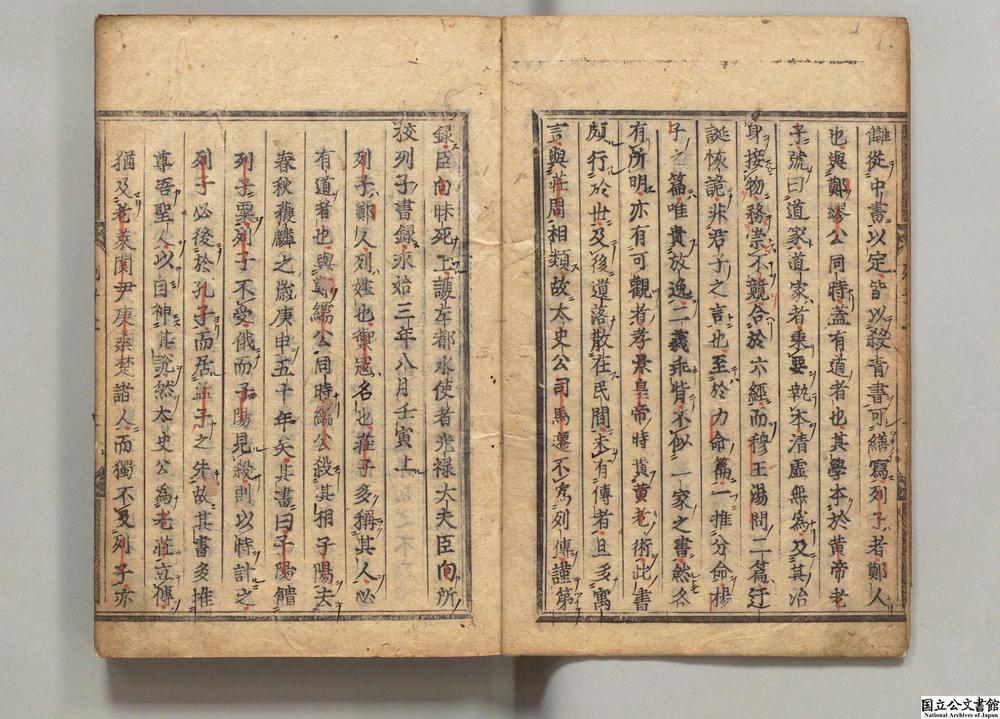 讎從中書以定皆以殺青書可繕寫列子者鄭人
也與鄭繆公同時蓋有道者也其學本於黃帝老
子號曰道家道家者秉要執本清虛無為及其治
身接物務崇不競合於六經而穆王湯問二篇迂
誕恢詭非君子之言也至於力命篇一推分命楊
子之篇唯貴放逸二義乖背不似一家之書然各
有所明亦有可觀者孝景皇帝時貴黃老術此書
頗行於世及後遺落散在民間未有傳者且多寓
言與莊周相類故太史公司馬遷不為列傳謹第
錄臣向昧死上護左都水使者光祿大夫臣向所
校列子書錄永始三年八月壬寅上
列子鄭人列姓也禦寇名也莊子多稱其人必
有道者也與鄭繻公同時繻公殺其相子陽去
春秋獲麟之歲庚申五十年矣其書曰子陽饋
列子粟列子不受俄而子陽見殺則以時計之
列子必後於孔子而居孟子之先故其書多推
尊吾聖人以自神其說然太史公為老莊立傳
猶及老萊關尹庚桑楚諸人而獨不及列子亦
国立公文書館
National Archives of Japan